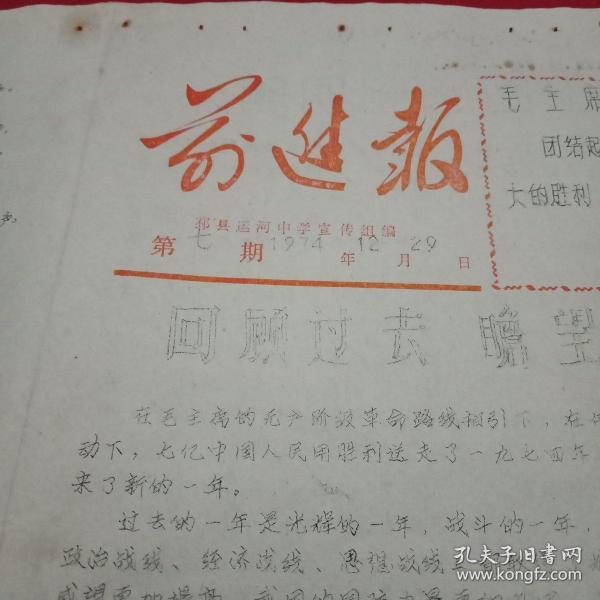 前进报
邳县运河中学宣传组编
第七期 1974年12月29日
毛主席
团结起
大的胜利
回顾过去 瞻望
在毛主席的无产阶级革命路线指引下，在
动下，七亿中国人民用胜利送走了一九七四年
来了新的一年。
过去的一年是光辉的一年，战斗的一年，
政治战线、经济战线、思想战线
威望更加提高，我国的国防力量更加
孔夫子旧书网
www.kongfz.com